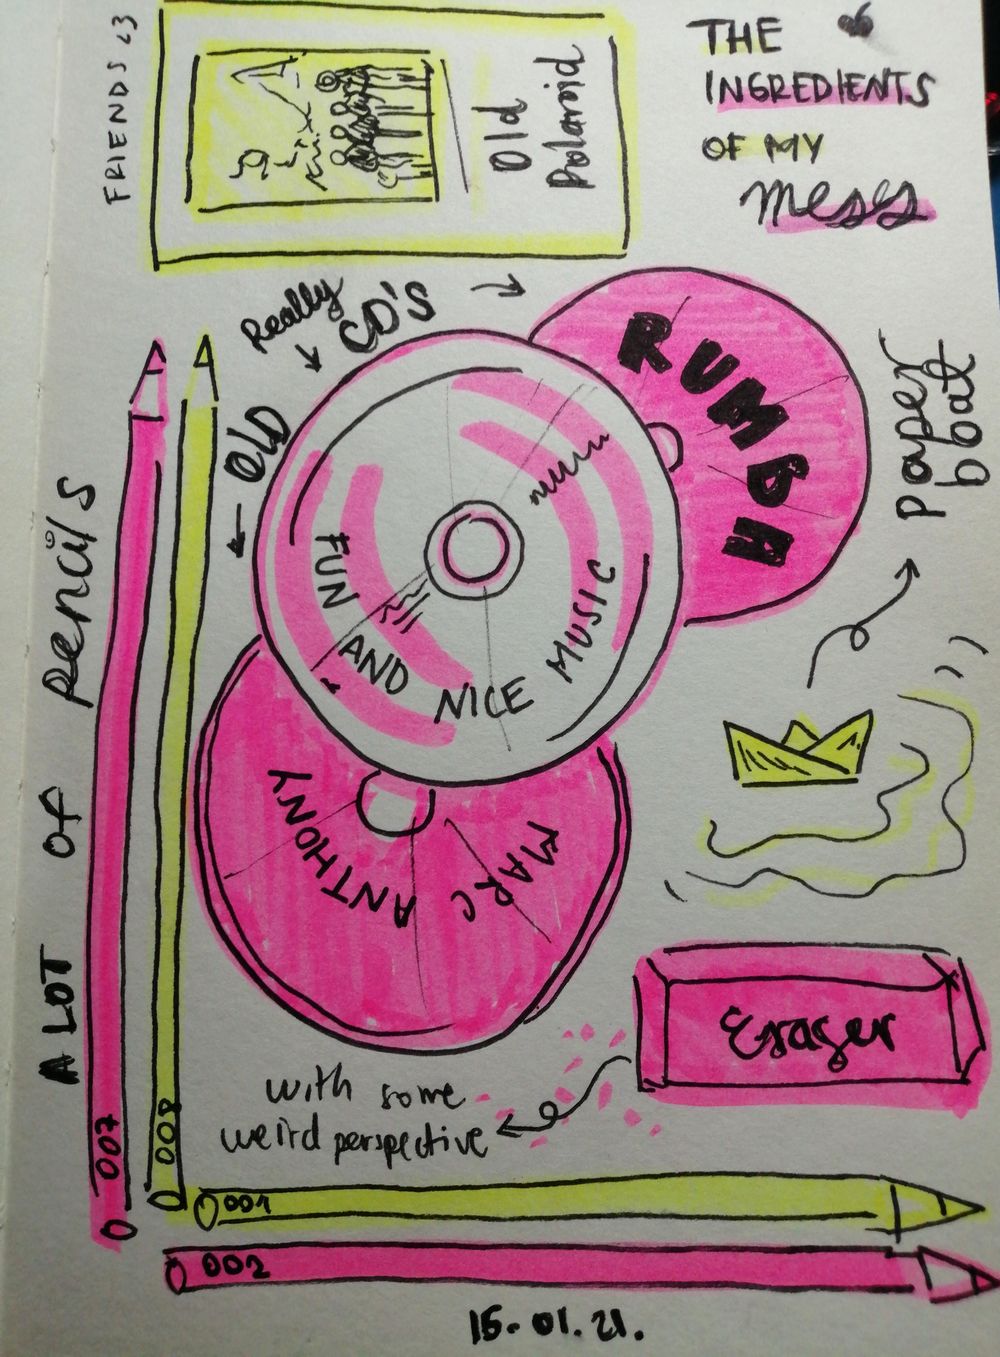 THE
INGREDIENTS
OF MY
mess
FRIENDS <3
Old
Polaroid
Really
OLD
CD'S
RUMBA
FUN AND NICE MUSIC
MARC ANTHONY
paper
boat
A LOT OF pencils
007
008
Eraser
with some
weird perspective
001
002
15.01.21.